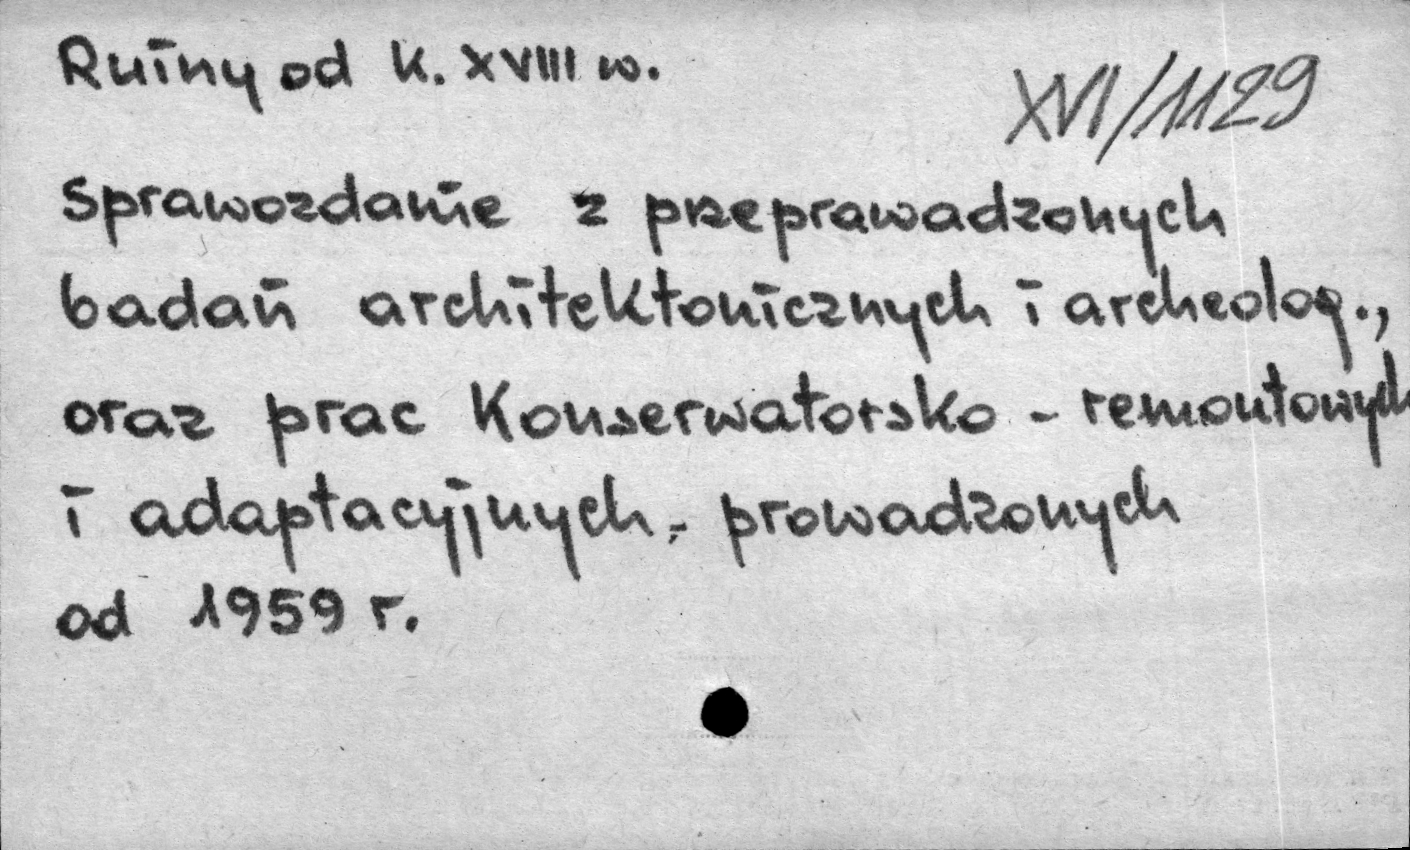 Ruiny od k. XVIII w.
XVI/1129
Sprawozdanie z przeprawadzonych
badań architektonicznych i archeolog.,
oraz prac Konserwatorsko - remontowych
i adaptacyjnych, prowadzonych
od 1959 r.